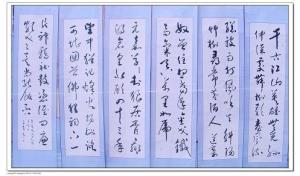 千古江山英雄無覓孫
仲謀處舞榭歌臺風流
總被雨打風吹去斜陽
草樹尋常巷陌人道寄
奴曾住想當年金戈鐵
馬氣吞萬里如虎
元嘉草草封狼居胥贏
得倉皇北顧四十三年
望中猶記烽火揚州路
可堪回首佛狸祠下一
片神鴉社鼓憑誰問廉
頗老矣尚能飯否